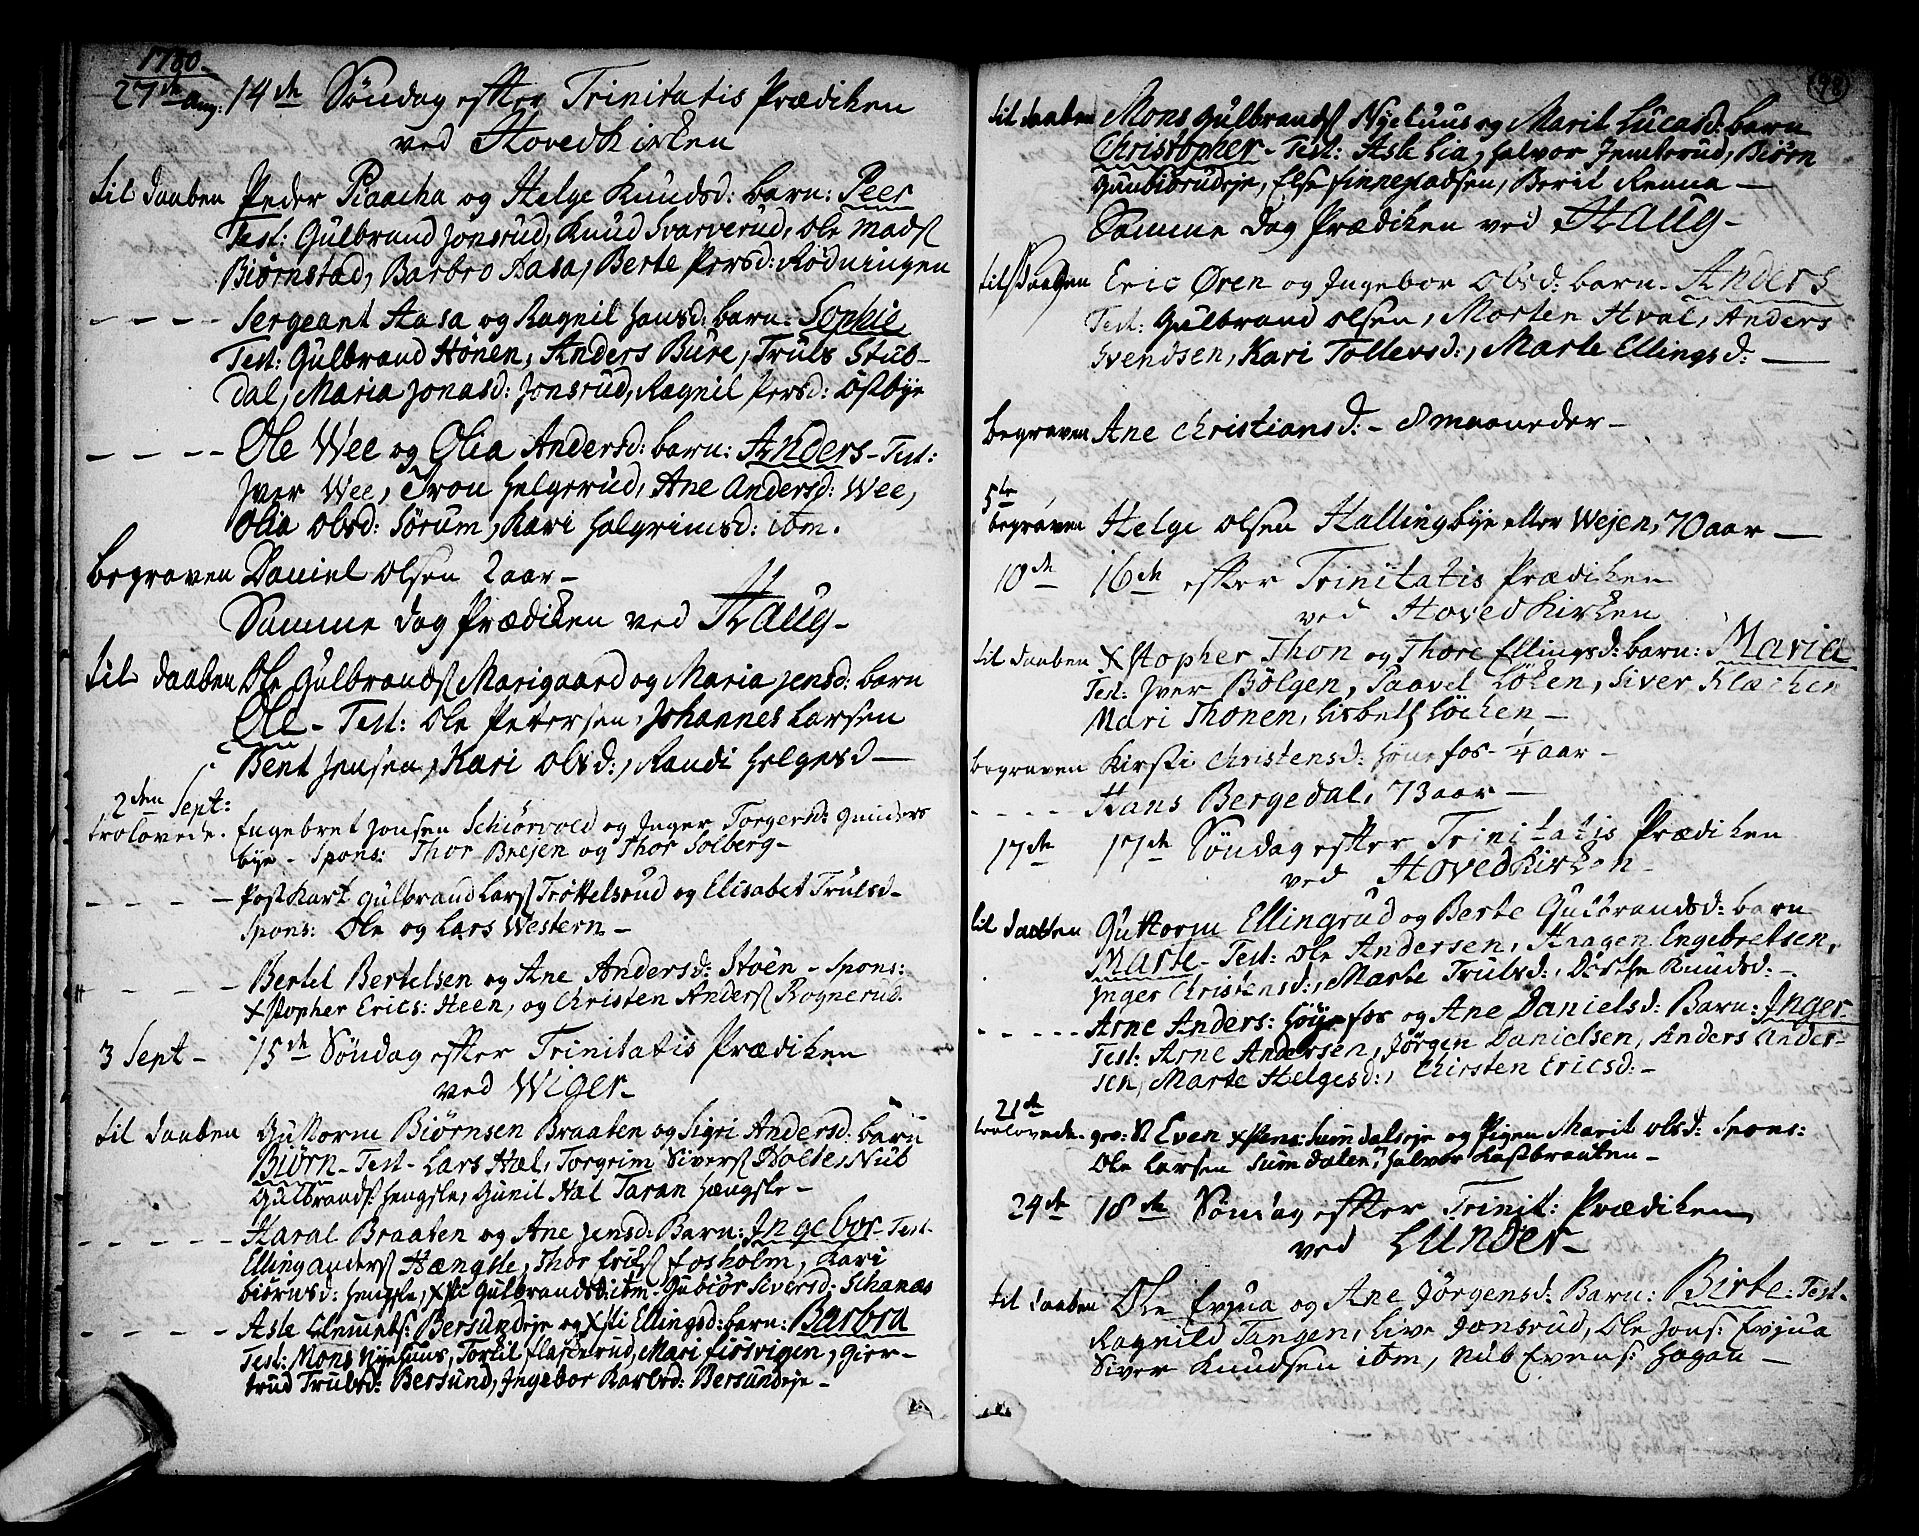 1780
27de Aug: 14de Søndag efter Trinitatis Prædiken
ved Hovedkirken
til daaben Peder Piaacha og Helge Knudsd: barn: Peer
Test: Gulbrand Jonsrud, Knud Svarverud, Ole Mads
Biørnstad, Barbro Aasa, Berte Persd: Rødningen
- - - - Sergeant Aasa og Ragnil Hansd: barn: Sophie
Test: Gulbrand Hønen, Anders Bure, Truls Stub-
dal, Maria Jonasd: Jonsrud, Ragnil Persd: Østbye
- - - - Ole Wee og Olia Andersd: barn: Anders - Test:
Iver Wee, Tron Helgerud, Ane Andersd: Wee,
Olia Olsd: Sørum, Kari Halgrimsd: ibm.
begraven Daniel Olsen 2 aar -
Samme dag Prædiken ved Haug -
til daaben Ole Gulbrands Marigaard og Maria Jensd: barn
Ole - Test: Ole Petersen, Johannes Larsen
Bent Jensen, Kari Olsd:, Randi Helgesd -
2den Sept:
trolovede. Engebret Jonsen Schiørvold og Inger Torgersd: Gunders
bye - Spons: Thor Brejen og Thor Solberg -
- - - - Postkarl Gulbrand Lars Trøttelsrud og Elisabet Trulsd -
Spons: Ole og Lars Western -
- - - - Bertel Bertelsen og Ane Andersd: Støen - Spons:
Xstopher Erics: Heen, og Christen Anders Rognerud.
3 Sept - 15de Søndag efter Trinitatis Prædiken
ved Wiger -
til daaben Guttorm Biørnsen Braaten og Sigri Andersd: barn
Biørn - Test - Lars Hæl, Torgrim Sivers Holte, Nub
Gulbrands: Hengsle, Gunil Hæl Taran Hængsle -
- - - - Haral Braaten og Ane Jensd: Barn: Ingebor - Test -
Elling Anders Hængsle, Thor Erics Fosholm, Kari
biørnsd: Hengsle, Xsti Gulbrandsd: ibm - Gubiør Siversd: Schanæs
- - - - Asle Clemets: Bersundeje og Xsti Ellingsd: barn: Barbra
Test: Mons Nyehuus, Tortil Flaskerud, Mari Fiøsvigen, Gier-
trud Trulsd: Bersund, Ingebor Karlsd: Bersundeje -
98
til daaben Mons Gulbrands Nyehuus og Marit Lucasd: barn
Christopher - Test: Asle Lia, Halvor Jemterud, Biørn
Gunbiørudeje, Else Finnepladsen, Berit Renna -
Samme dag Prædiken ved Haug -
til daaben Eric Øren og Ingebor Olsd: barn - Anders
Test: Gulbrand Olsen, Morten Hval, Anders
Svendsen, Kari Tollevsd:, Marte Ellingsd: -
begraven Ane Christiansd: - 8 maaneder -
5te
begraven Helge Olsen Hallingbye eller Wejen, 70 aar -
10de 16de efter Trinitatis Prædiken
ved Hovedkirken
til daaben Xstopher Thon og Thore Ellingsd: barn: Maria
Test: Iver Bølgen, Paavel Løken, Siver Klæcken
Mari Thonen, Lisbeth Løcken -
begraven Kirsti Christensd: Hønefos - 1/4 aar -
- - - - Hans Bergedal, 73 aar -
17de 17de Søndag efter Trinitatis Prædiken
ved Hovedkirken -
til daaben Guttorm Ellingrud og Berte Gulbrandsd: barn
Marte - Test: Ole Andersen, Haagen Engebretsen,
Inger Christensd:, Marte Trulsd:, Dorthe Knudsd: -
- - - - Arne Anders: Hønefos og Ane Danielsd: Barn: Inger
Test: Arne Andersen, Jørgen Danielsen, Anders Ander-
sen, Marte Helgesd:, Chirsten Ericsd: -
21de
trolovede. Even Xstens: Sumdalseje og Pigen Marit Olsd: Spons:
Ole Larsen Sumdalen, Halvor Kastbraaten -
24de 18de Søndag efter Trinit: Prædiken
ved Lunder -
til daaben Ole Evjua og Ane Jørgensd: Barn: Birte: Test -
Ragnild Tangen, Live Jonsrud, Ole Jons: Evjua
Siver Knudsen ibm, Nub Evens: Hagan -